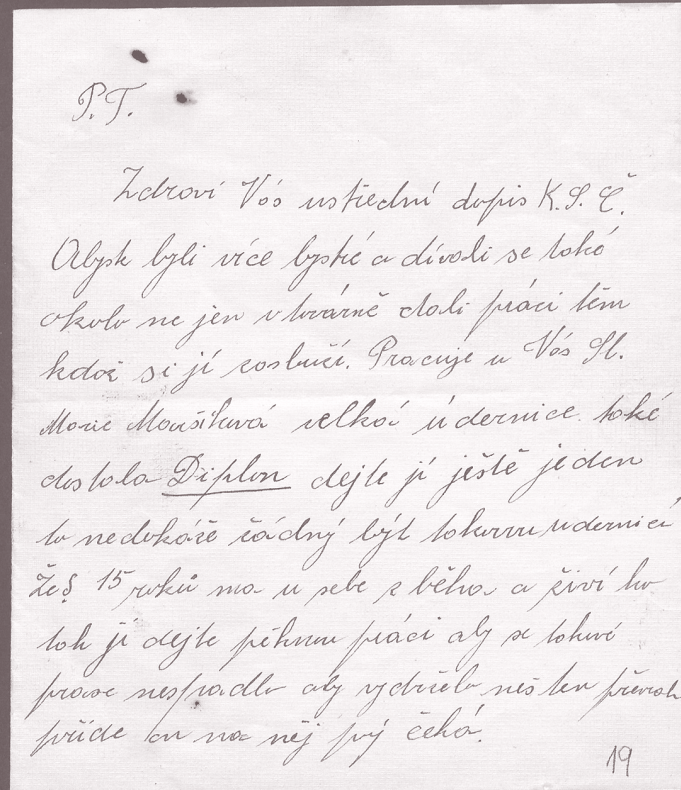 P.T.
Zdraví Vás ustřední dopis K.S.Č.
Abysk byli více bystré a dívali se také
okolo ne jen v továrně dali práci těm
kdož si jí zaslučí. Pracuje u Vás Sl.
Marie Moušiková velká údernice také
dostala Diplon dejte jí ještě jeden
to nedokáže žádný být takovou udernicí
Že § 15 roků ma u sebe zběha a živí ho
tak jí dejte pěknou práci aby se takové
prase nespadlo aby vydrželo neš ten převrat
příde on na něj prý čeká.
19